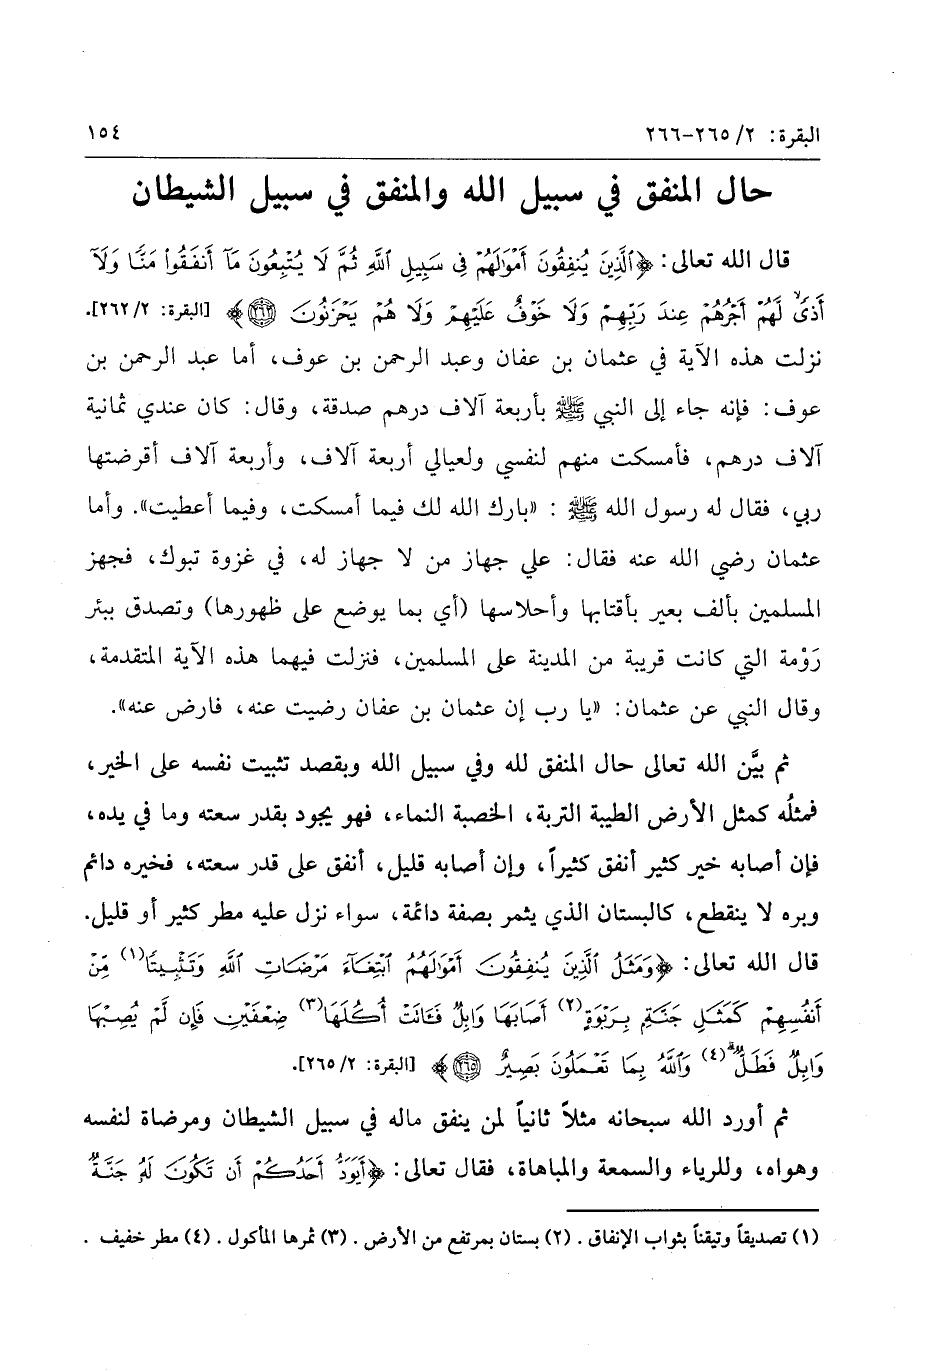 البقرة: ٢/ ٢٦٥-٢٦٦ ١٥٤
حال المنفق في سبيل الله والمنفق في سبيل الشيطان
قال الله تعالى: ﴿ٱلَّذِينَ يُنفِقُونَ أَمْوَٰلَهُمْ فِى سَبِيلِ ٱللَّهِ ثُمَّ لَا يُتْبِعُونَ مَآ أَنفَقُوا۟ مَنًّا وَلَآ
أَذًىۙ لَّهُمْ أَجْرُهُمْ عِندَ رَبِّهِمْ وَلَا خَوْفٌ عَلَيْهِمْ وَلَا هُمْ يَحْزَنُونَ ﴿٢٦٢﴾﴾ [البقرة: ٢/ ٢٦٢].
نزلت هذه الآية في عثمان بن عفان وعبد الرحمن بن عوف، أما عبد الرحمن بن
عوف: فإنه جاء إلى النبي ﷺ بأربعة آلاف درهم صدقة، وقال: كان عندي ثمانية
آلاف درهم، فأمسكت منهم لنفسي ولعيالي أربعة آلاف، وأربعة آلاف أقرضتها
ربي، فقال له رسول الله ﷺ : «بارك الله لك فيما أمسكت، وفيما أعطيت». وأما
عثمان رضي الله عنه فقال: علي جهاز من لا جهاز له، في غزوة تبوك، فجهز
المسلمين بألف بعير بأقتابها وأحلاسها (أي بما يوضع على ظهورها) وتصدق ببئر
رَوْمة التي كانت قريبة من المدينة على المسلمين، فنزلت فيهما هذه الآية المتقدمة،
وقال النبي عن عثمان: «يا رب إن عثمان بن عفان رضيت عنه، فارض عنه».
ثم بيَّن الله تعالى حال المنفق لله وفي سبيل الله وبقصد تثبيت نفسه على الخير،
فمثلُه كمثل الأرض الطيبة التربة، الخصبة النماء، فهو يجود بقدر سعته وما في يده،
فإن أصابه خير كثير أنفق كثيراً، وإن أصابه قليل، أنفق على قدر سعته، فخيره دائم
وبره لا ينقطع، كالبستان الذي يثمر بصفة دائمة، سواء نزل عليه مطر كثير أو قليل.
قال الله تعالى: ﴿وَمَثَلُ ٱلَّذِينَ يُنفِقُونَ أَمْوَٰلَهُمُ ٱبْتِغَآءَ مَرْضَاتِ ٱللَّهِ وَتَثْبِيتًا(١) مِّنْ
أَنفُسِهِمْ كَمَثَلِ جَنَّةٍۭ بِرَبْوَةٍ(٢) أَصَابَهَا وَابِلٌ فَـَٔاتَتْ أُكُلَهَا(٣) ضِعْفَيْنِ فَإِن لَّمْ يُصِبْهَا
وَابِلٌ فَطَلٌّۗ(٤) وَٱللَّهُ بِمَا تَعْمَلُونَ بَصِيرٌ ﴿٢٦٥﴾﴾ [البقرة: ٢/ ٢٦٥].
ثم أورد الله سبحانه مثلاً ثانياً لمن ينفق ماله في سبيل الشيطان ومرضاة لنفسه
وهواه، وللرياء والسمعة والمباهاة، فقال تعالى: ﴿أَيَوَدُّ أَحَدُكُمْ أَن تَكُونَ لَهُۥ جَنَّةٌ
(١) تصديقاً وتيقناً بثواب الإنفاق . (٢) بستان بمرتفع من الأرض . (٣) ثمرها المأكول . (٤) مطر خفيف .